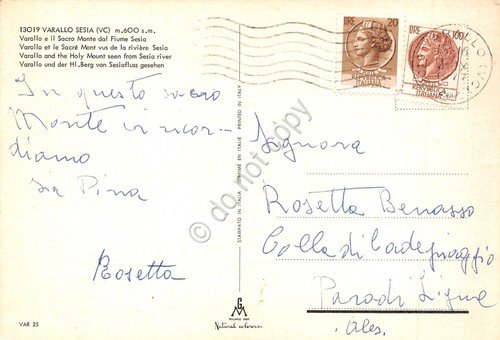 13019 VARALLO SESIA (VC) m.600 s.m.
Varallo e il Sacro Monte dal Fiume Sesia
Varallo et le Sacré Mont vus de la rivière Sesia
Varallo and the Holy Mount seen from Sesia river
Varallo und der Hl.Berg von Sesiafluss gesehen
In questo sacro
Monte vi ricor-
diamo
zia Pina
Rosetta
VAR 25
STAMPATO IN ITALIA PRINTED IN ITALY
GM
MILANO
Naturel colour
© do not copy
LIRE 20
LIRE 100
POSTE
ITALIANE
ITALIANA
VARALLO
Signora
Rosetta Benasso
Colla di
Parodi Ligure
Ales.